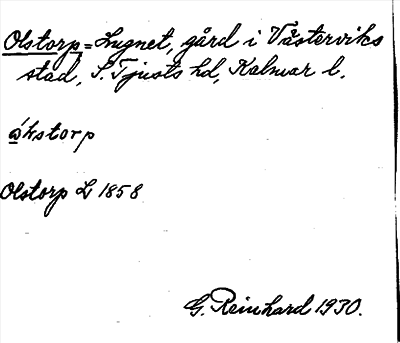 Olstorp = Lugnet, gård i Västerviks
stad, S. Tjusts hd, Kalmar l.
åkstorp
Olstorp L 1858
G. Reinhard 1930.